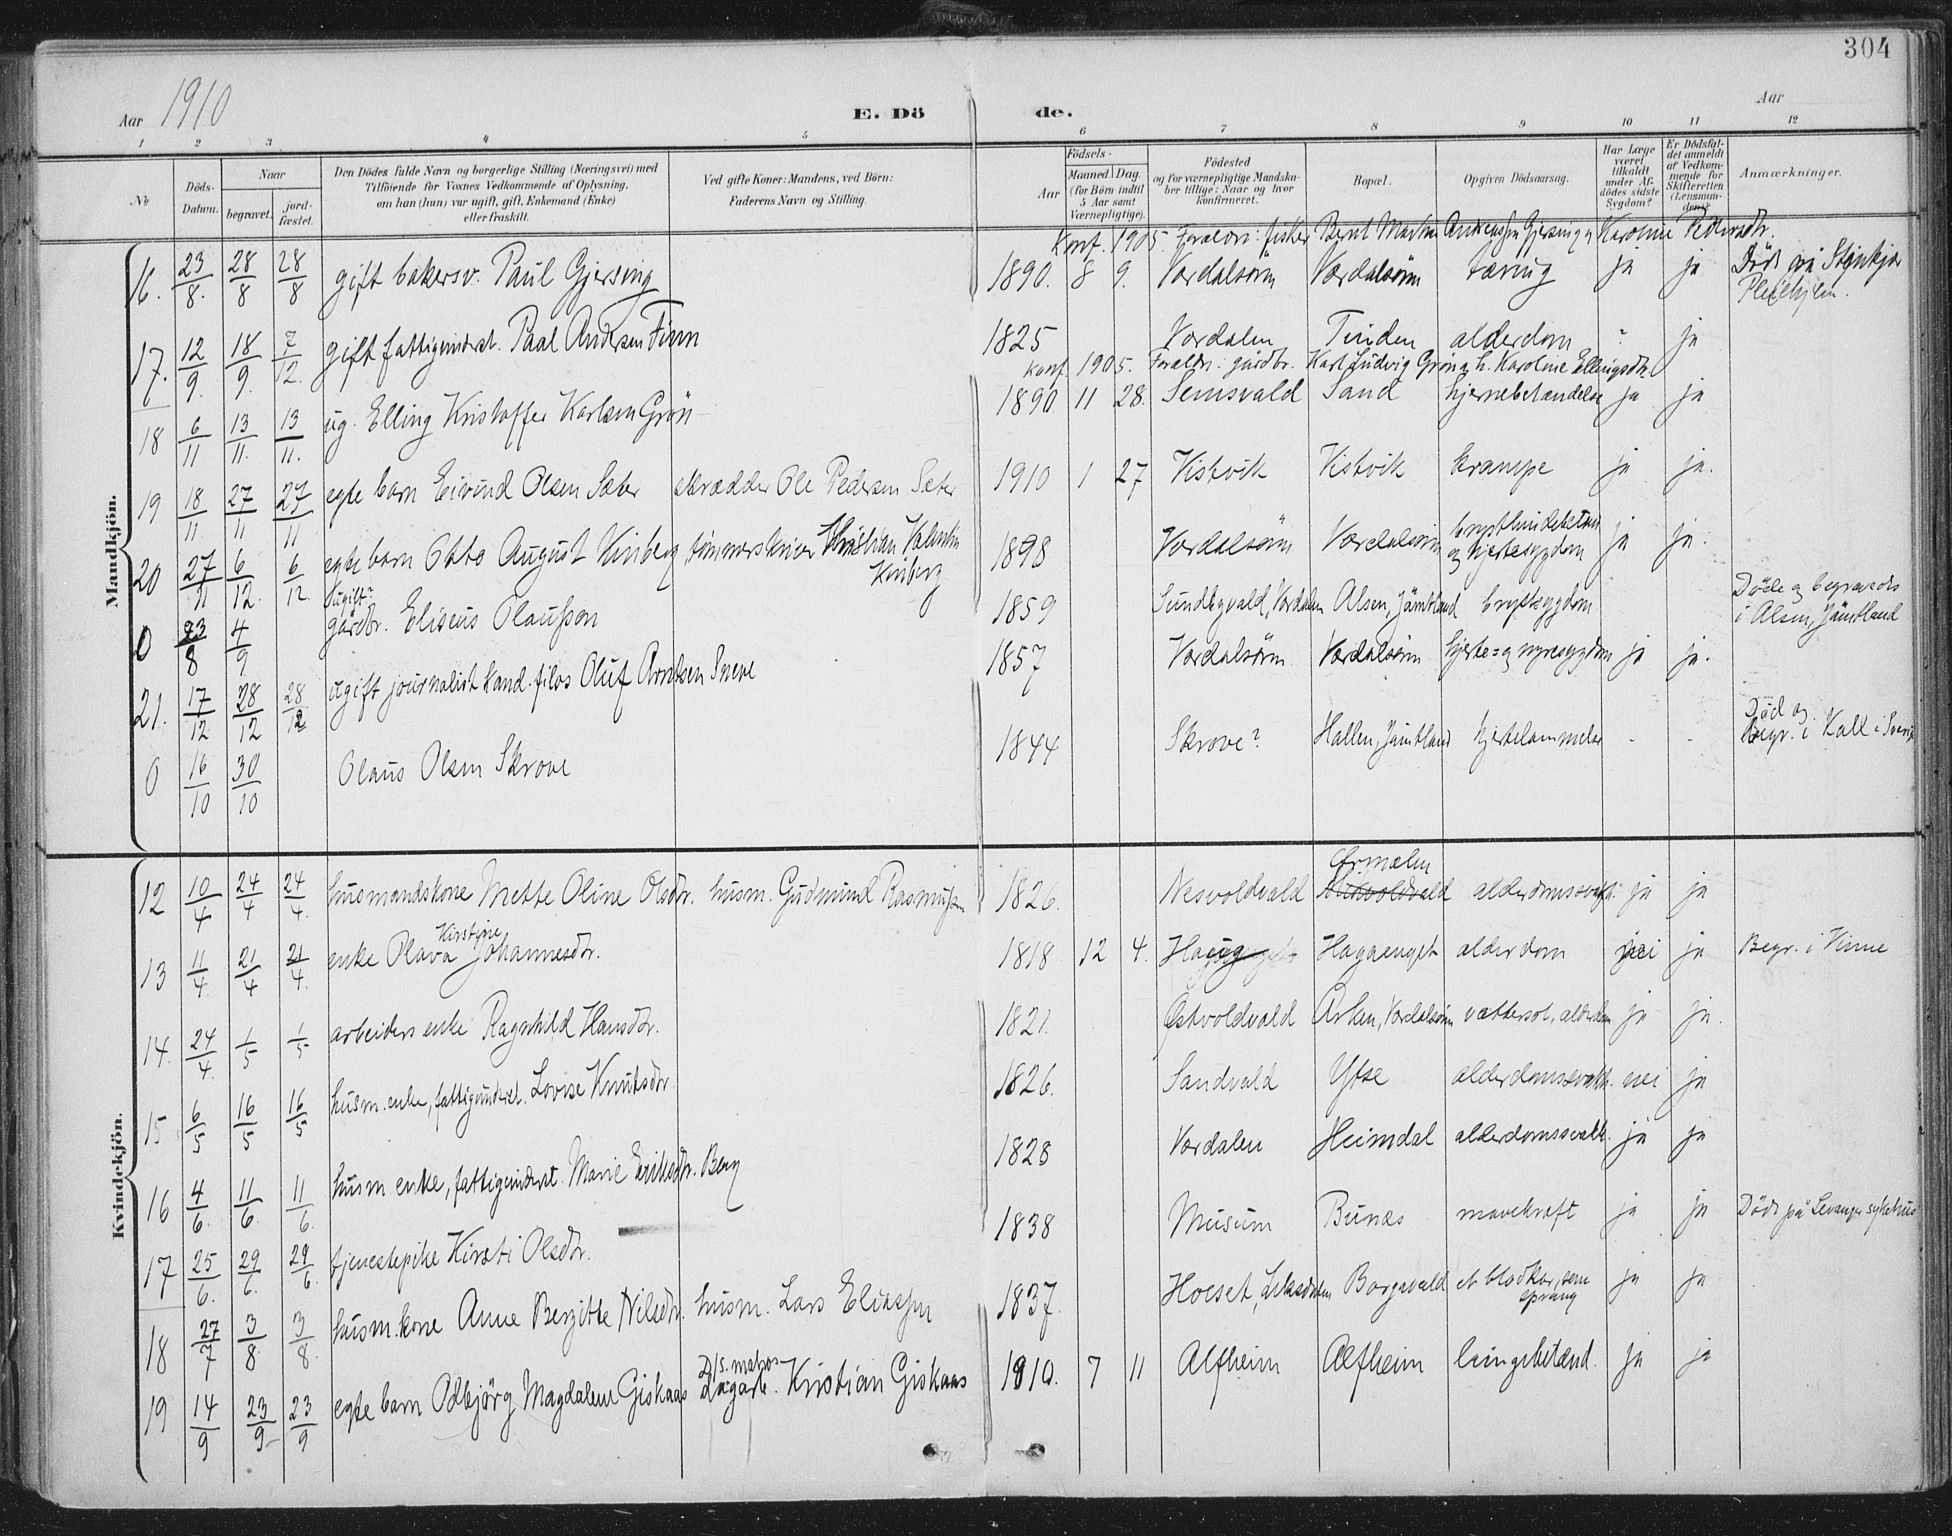 304
Aar 1910
E. Döde.
Aar
1 2 3 4 5 6 7 8 9 10 11 12
№
Döds-Datum.
Naar
begravet.
jordfæstet.
Den Dödes fulde Navn og borgerlige Stilling (Næringsvei) med
Tilföiende for Voxnes Vedkommende af Oplysning,
om han (hun) var ugift, gift, Enkemand (Enke)
eller fraskilt.
Ved gifte Koner: Mandens, ved Börn:
Faderens Navn og Stilling.
Födsels-
Aar
Maaned Dag
(for Börn indtil 5 Aar samt Værnepligtige).
Födested
og for værnepligtige Mandskaber tillige: Naar og hvor konfirmeret.
Bopæl.
Opgiven Dödsaarsag.
Har Læge været tilkaldt under Afdödes sidste Sygdom?
Er Dödsfaldet anmeldt af Vedkommende for Skifteretten (Lensmanden)?
Anmærkninger.
Mandkjön.
Konf. 1905. Foreldre: fisker Bernt Martin Gjersing og Karoline Pedersdtr.
16. 23/8. 28/8 28/8 gift bakersv. Paul Gjersing 1890. 8 9. Værdalsøren Værdalsøren tæring ja ja Død på Stenkjær Pleiehjem.
17. 12/9. 18/9. 7/12. gift fattigunderst. Paal Andersen Finn 1825 Værdalen Tinden alderdom ? ja
Konf. 1905. Foreldre: gårdbr. Karl Ludvig Grön og h. Karoline Ellingsdtr.
18 6/11 13/11. 13/11. ug. Elling Kristoffer Karlsen Grön 1890. 11 28. Semsvald Sand hjernebetændelse ja ja
19 18/11 27/11 27/11 egte barn Eivind Olsen Sæter skrædder Ole Pedersen Sæter 1910 1 27 Vistvik Vistvik krampe ja ja.
20 27/11 6/12. 6/12. egte barn Otto August Kinberg tømmerskriver Kristian Valentin Kinberg 1898 Værdalsøren Værdalsøren brysthindebetænd. og hjertesygdom ja ja.
0 23/8 4/9 (ugift? gårdbr. Eliseus Olausson 1859 Sundbyvald, Værdalen Alsen, Jämtland brystsygdom Döde og begravedes i Alsen, Jämtland
21. 17/12. 28/12 28/12 ugift journalist kand. filos Oluf Arntsen Sneve 1857 Værdalsøren Værdalsøren hjerte= og nyresygdom ja ja.
0 16/10 30/10 Olaus Olsen Skrove 1844 Skrove? Hallen, Jämtland hjertelammelse - - Död og Begr. i Kall i Sverige
Kvindekjön.
12 10/4 24/4 24/4. husmandskone Mette Oline Olsdtr. husm. Gudmund Rasmussen 1826. Nesvoldvald Ørmelen alderdomssvakh. ja ja
13 11/4. 21/4 21/4. enke Olava Kirstine Johannesdtr. 1818 12 4. Haug Hagaenget alderdom nei ja Begr. i Vinne
14. 24/4. 1/5 1/5 arbeiders enke Ragnhild Hansdtr. 1821. Østvoldvald Arken, Værdalsøren vattersot, alderdom ja ja.
15 6/5 16/5 16/5 husm. enke, fattigunderst. Lovise Knutsdtr. 1826. Sandvald Ytse alderdomssvakh. nei ja
16 4/6. 11/6. 11/6. husm. enke, fattigunderst. Marie Eriksdtr. Berg 1828 Værdalen Heimdal alderdomssvakh. ja ja
17 25/6. 29/6. 29/6. tjenestepike Kirsti Olsdtr. 1838 Musum Bunæs mavekræft ja ja Död på Levanger sykehus
18 27/7 3/8 3/8. husm.kone Anne Bergitte Nilsdtr. husm. Lars Eliassen 1837. Hoeset, Leksdalen Borgsvald et blodkar, som sprang ja ja
19 14/9 23/9 23/9 egte barn Odbjörg Magdalene Giskaas D/s. matros Kristian Giskaas 1910. 7 11 Alfheim Alfheim lungebetænd. ja ja